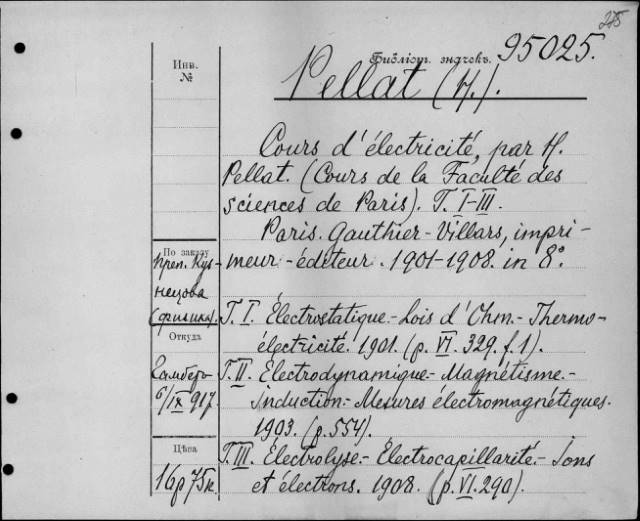 275
Библіот. значекъ. 95025.
Инв.
№
Pellat (H.).
Cours d'électricité, par H.
Pellat. (Cours de la Faculté des
sciences de Paris). T. I-III.
Paris. Gauthier-Villars, impri-
meur-éditeur. 1901-1908. in 8°.
По заказу
Преп. Куз-
нецова
(физика).
T. I. Électrostatique.- Lois d'Ohm.- Thermo-
électricité. 1901. (p. VI. 329. f. 1).
Откуда
Гамберъ
6/IX 917.
T. II. Électrodynamique.- Magnétisme.-
Induction.- Mesures électromagnétiques.
1903. (p. 554).
Цѣна
16р 75к.
T. III. Électrolyse.- Électrocapillarité.- Ions
et électrons. 1908. (p. VI. 290).